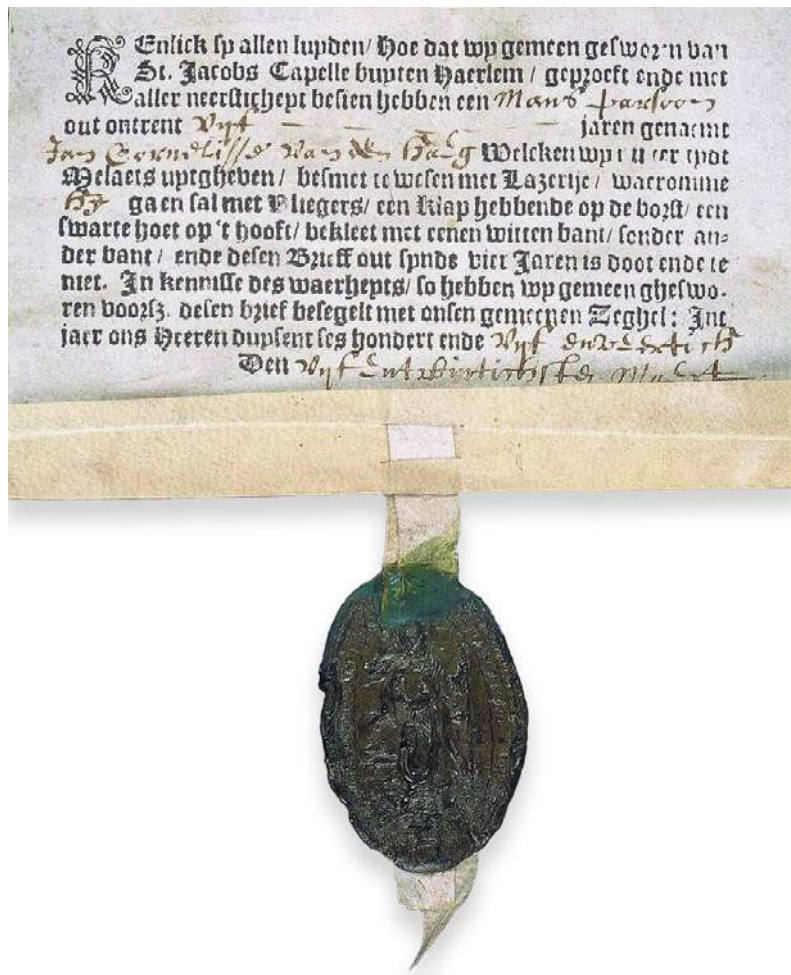 KEnlick sy allen luyden/ Hoe dat wy gemeen gesworn van
St. Jacobs Capelle buyten Haerlem / geproeft ende met
aller neerstichept besien hebben een Mans parsoon
out ontrent Vyf — — — — jaren genaemt
Jan Cornelisse Van den Haeg Welcken wy
Melaets uptgheven / besmet te wesen met Lazerije / waeromme
Hy gaen sal met Vliegers/ een Klap hebbende op de borst/ een
swarte hoet op 't hooft/ bekleet met eenen witten bant/ sonder an-
der bant / ende desen Brieff out synde vier Jaren is doot ende te
niet. In kennisse des waerhepts/ so hebben wy gemeen gheswo-
ren voorsz. desen brief besegelt met onsen gemeenen Zeghel: Int
jaer ons Heeren dupsent ses hondert ende Vyf
Den Vyf